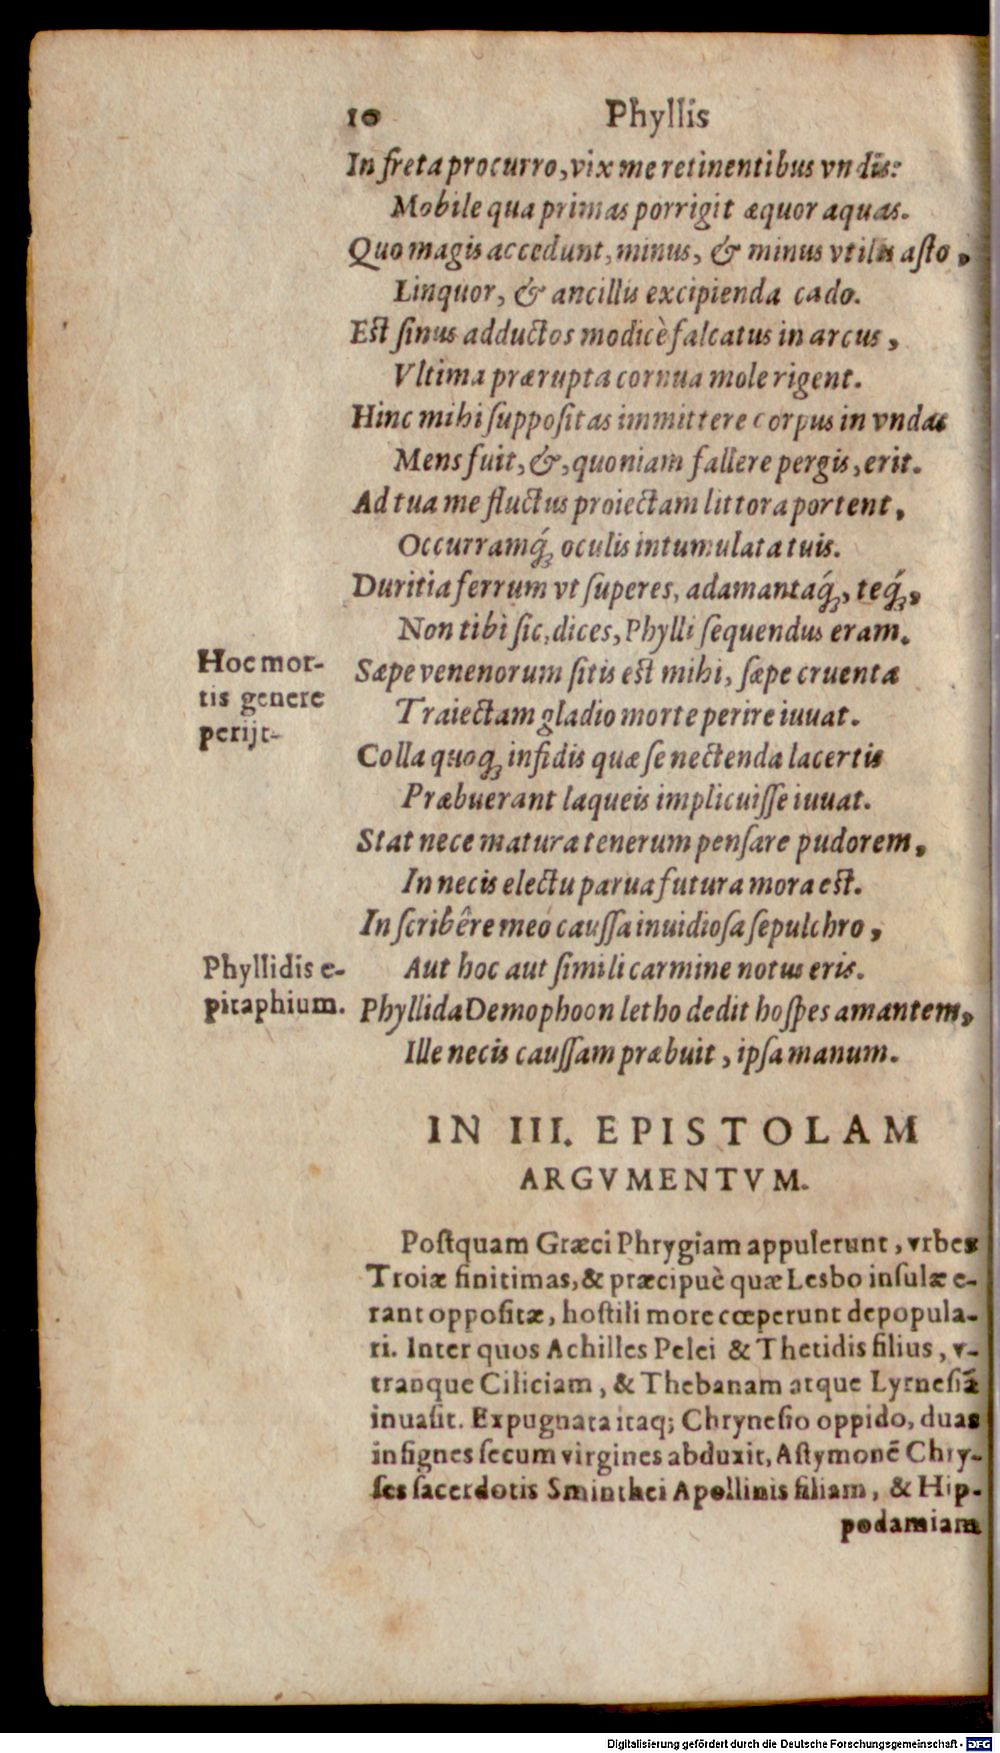 10 Phyllis
In freta procurro, vix me retinentibus vndis:
Mobile qua primas porrigit æquor aquas.
Quo magis accedunt, minus, & minus vtilis asto,
Linquor, & ancillis excipienda cado.
Est sinus adductos modicè falcatus in arcus,
Vltima prærupta cornua mole rigent.
Hinc mihi suppositas immittere corpus in vndas
Mens fuit, &, quoniam fallere pergis, erit.
Ad tua me fluctus proiectam littora portent,
Occurramq́; oculis intumulata tuis.
Duritia ferrum vt superes, adamantaq́;, teq́;,
Non tibi sic, dices, Phylli sequendus eram.
Hoc mor-
tis genere
perijt.
Sæpe venenorum sitis est mihi, sæpe cruenta
Traiectam gladio morte perire iuuat.
Colla quoq; infidis quæ se nectenda lacertis
Præbuerant laqueis implicuisse iuuat.
Stat nece matura tenerum pensare pudorem,
In necis electu parua futura mora est.
Inscribêre meo caussa inuidiosa sepulchro,
Phyllidis e-
pitaphium.
Aut hoc aut simili carmine notus eris.
Phyllida Demophoon letho dedit hospes amantem,
Ille necis caussam præbuit, ipsa manum.
IN III. EPISTOLAM
ARGVMENTVM.
Postquam Græci Phrygiam appulerunt, vrbes
Troiæ finitimas, & præcipuè quæ Lesbo insulæ e-
rant oppositæ, hostili more cœperunt depopula-
ri. Inter quos Achilles Pelei & Thetidis filius, v-
tranque Ciliciam, & Thebanam atque Lyrnesiā
inuasit. Expugnata itaq; Chrynesio oppido, duas
insignes secum virgines abduxit, Astymonē Chry-
ses sacerdotis Sminthei Apollinis filiam, & Hip-
podamiam
Digitalisierung gefördert durch die Deutsche Forschungsgemeinschaft - DFG